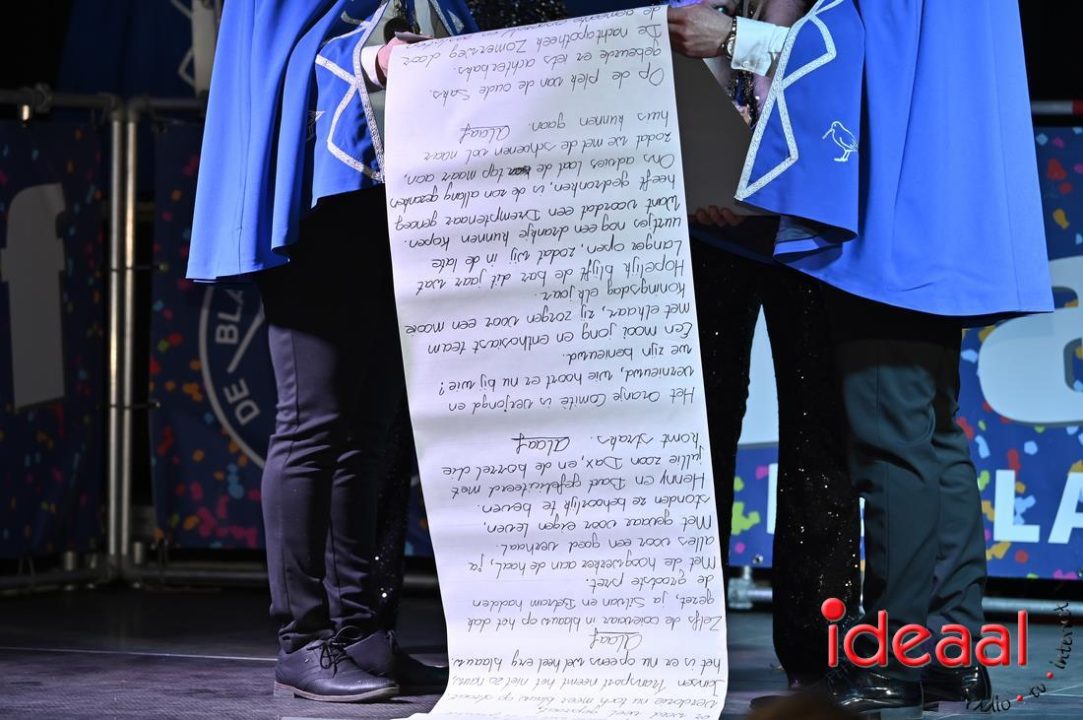 Jansen Transport neemt het niet zo nauw,
het is er nu opeens wel heel erg blauw.
Alaaf
Zelfs de ooievaar in blauw op het dak
gezet, ja Silvan en Betram hadden
de grootste pret.
Met de hoogwerker aan de haal, ja
alles voor een goed verhaal.
Met gevaar voor eigen leven,
stonden ze behoorlijk te beven.
Henny en gefeliciteerd met
jullie zoon Dax, en de borrel die
komt straks. Alaaf
Het Oranje Comité is verjongd en
vernieuwd, wie hoort er nu bij wie?
we zijn benieuwd.
Een mooi jong en enthousiast team
met elkaar, zij zorgen voor een mooie
Koningsdag elk jaar.
Hopelijk blijft de bar dit jaar wat
langer open, zodat wij in de late
uurtjes nog een drankje kunnen kopen.
Want voordat een Dremptenaar genoeg
heeft gedronken, is de zon allang gezonken
Ons advies laat de tap maar aan,
zodat we met de schoenen vol naar
huis kunnen gaan. Alaaf
Op de plek van de oude Saks.
gebeurde er iets achterbaks.
De nachtapotheek Zomerweg door
de gemeente
DE BLA
f
a
LA
ideaal
radio tv internet